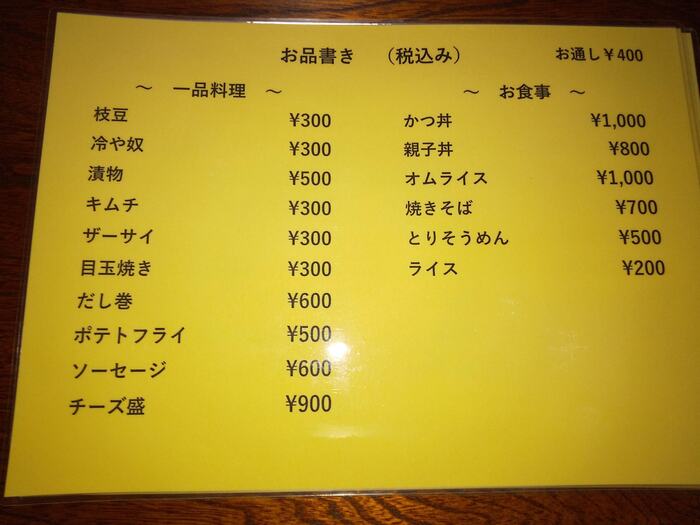 お品書き （税込み） お通し￥400
～ 一品料理 ～
枝豆 ¥300
冷や奴 ¥300
漬物 ¥500
キムチ ¥300
ザーサイ ¥300
目玉焼き ¥300
だし巻 ¥600
ポテトフライ ¥500
ソーセージ ¥600
チーズ盛 ¥900
～ お食事 ～
かつ丼 ¥1,000
親子丼 ¥800
オムライス ¥1,000
焼きそば ¥700
とりそうめん ¥500
ライス ¥200